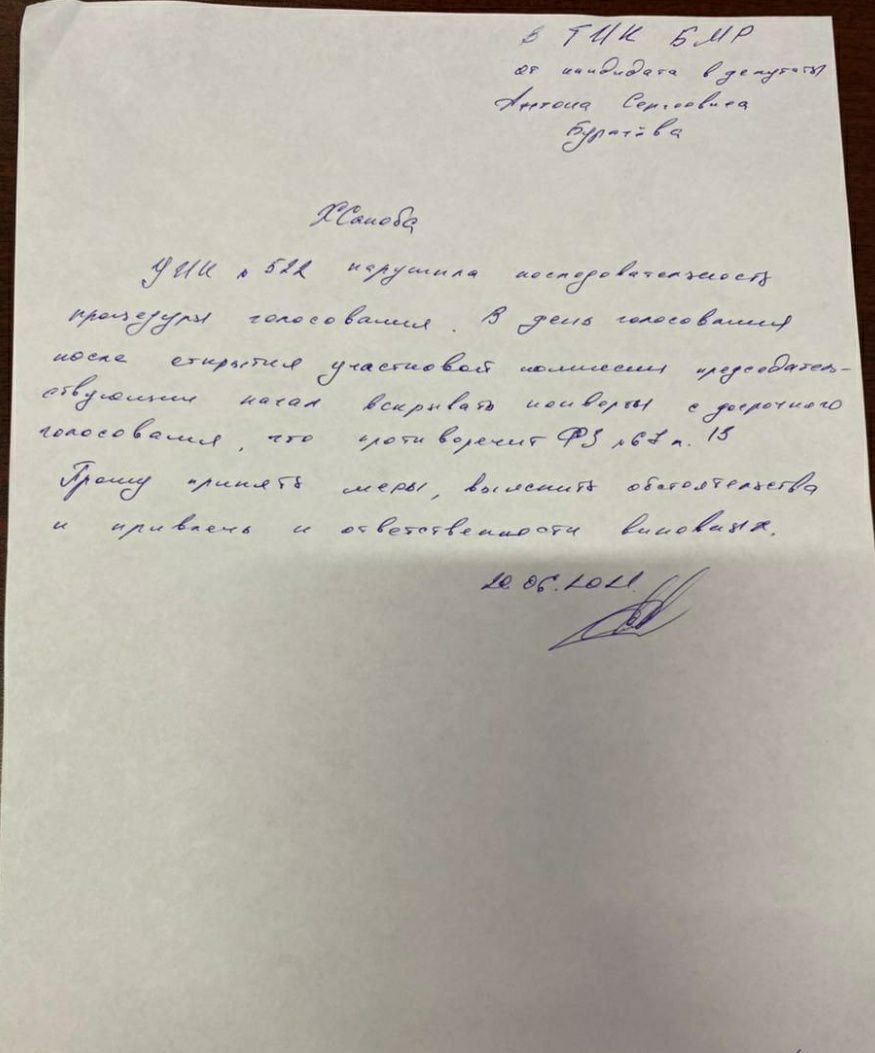 В ТИК БМР
от кандидата в депутаты
Антона Сергеевича
Жалоба
УИК № 522 нарушила последовательность
процедуры голосования. В день голосования
после открытия участковой комиссии председатель-
ствующий начал вскрывать конверты с досрочного
голосования, что противоречит ФЗ №67 п. 13
Прошу принять меры, выяснить обстоятельства
и привлечь к ответственности виновных.
20.06.2021.